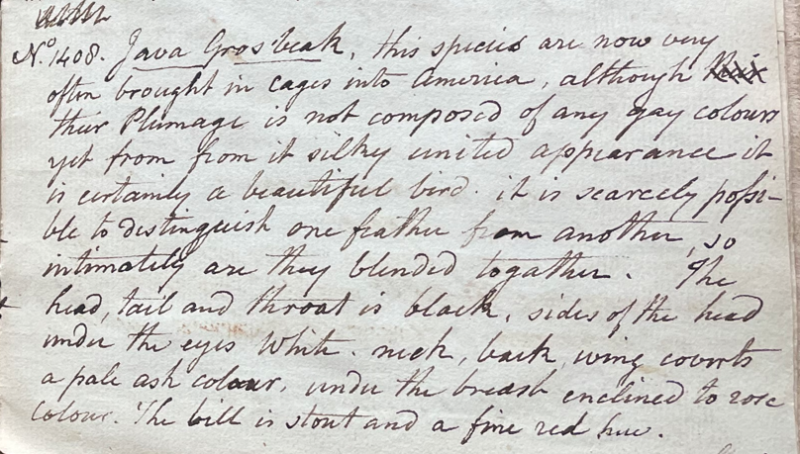 No. 1408. Java Gros'beak, this species are now very
often brought in cages into America, although
their Plumage is not composed of any gay colours
yet from from it silky united appearance it
is certainly a beautiful bird. it is scarcely possi-
ble to distinguish one feather from another, so
intimately are they blended togather. The
head, tail and throat is black, sides of the head
under the eyes White. neck, back, wing coverts
a pale ash colour, under the breast enclined to rose
colour. The bill is stout and a fine red hue.